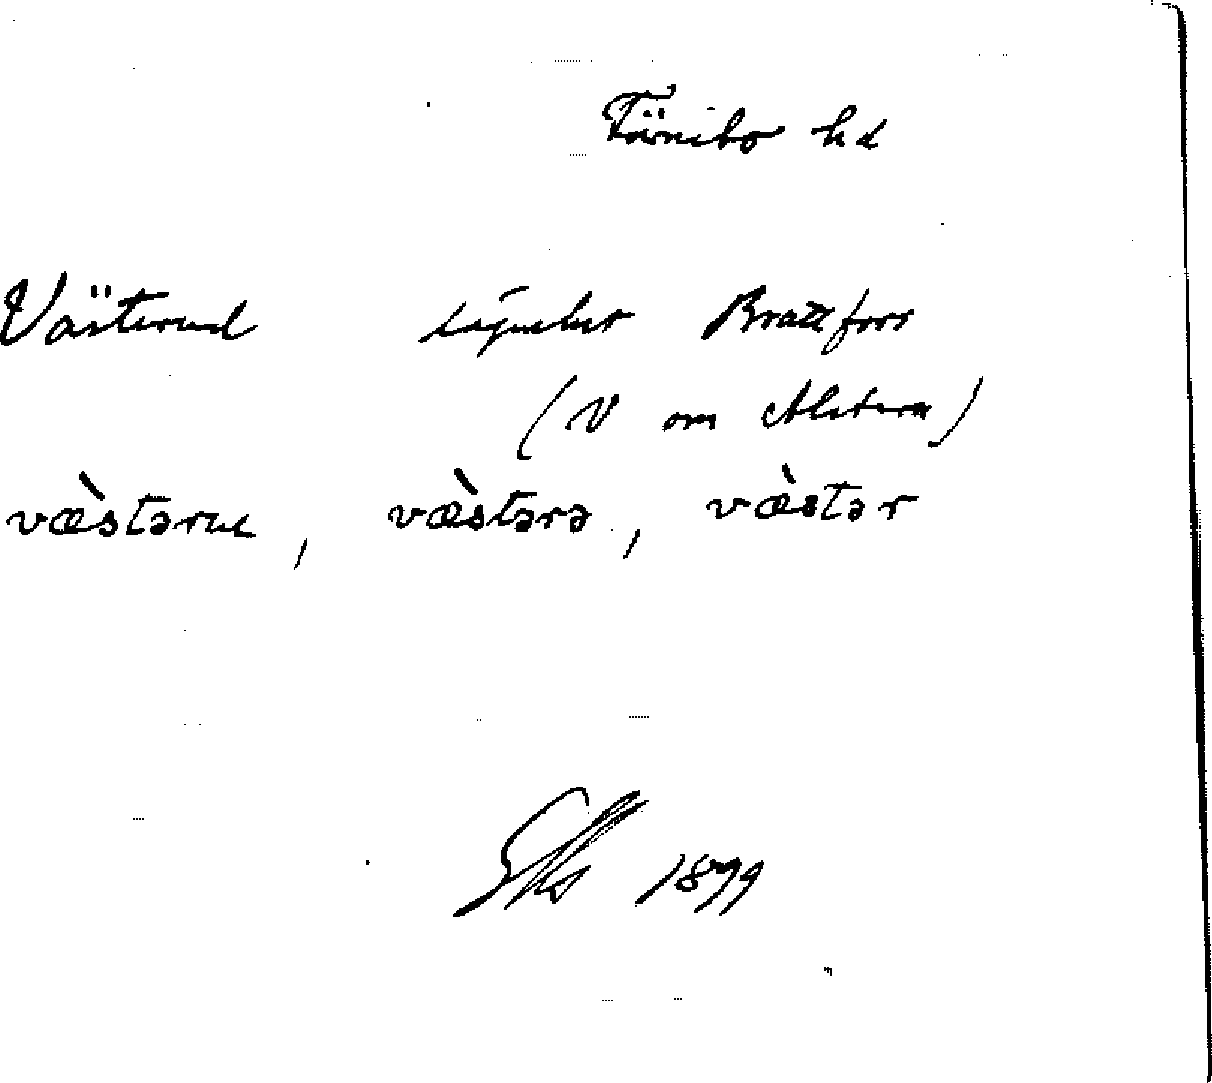 Färnebo hd
Västerud Lägenhet Brattfors
(V om Alstern)
væ̀stərut, væ̀stərə, væ̀stər
1899